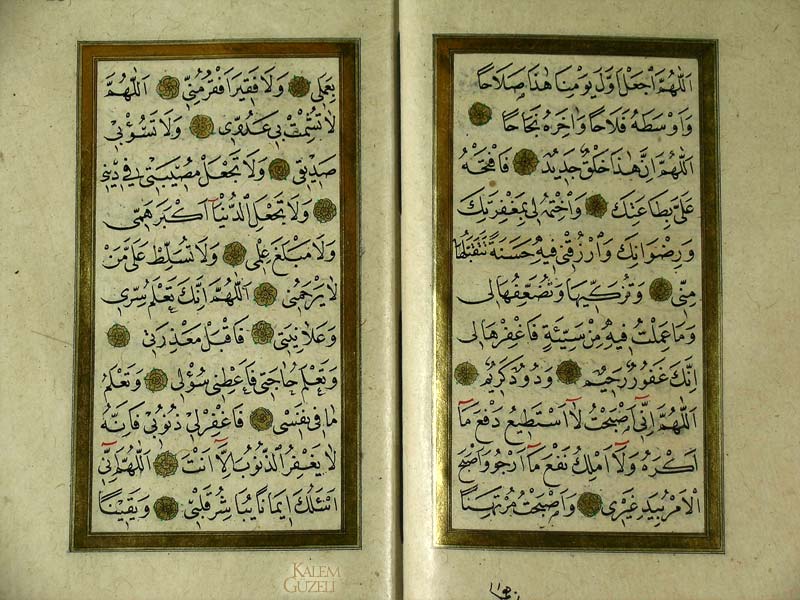 اَللّٰهُمَّ اجْعَلْ اَوَّلَ يَوْمِنَا هٰذَا صَلَاحًا
وَاَوْسَطَهُ فَلَاحًا وَاٰخِرَهُ نَجَاحًا
اَللّٰهُمَّ اِنَّ هٰذَا خَلْقٌ جَدِيدٌ فَافْتَحْهُ
عَلَيَّ بِطَاعَتِكَ وَاخْتِمْهُ لِى بِمَغْفِرَتِكَ
وَرِضْوَانِكَ وَارْزُقْنِى فِيهِ حَسَنَةً تَتَقَبَّلُهَا
مِنِّى وَتُزَكِّيهَا وَتُضَعِّفُهَا لِى
وَمَا عَمِلْتُ فِيهِ مِنْ سَيِّئَةٍ فَاغْفِرْهَا لِى
اِنَّكَ غَفُورٌ رَحِيمٌ وَدُودٌ كَرِيمٌ
اَللّٰهُمَّ اِنِّى اَصْبَحْتُ لَا اَسْتَطِيعُ دَفْعَ مَا
اَكْرَهُ وَلَا اَمْلِكُ نَفْعَ مَا اَرْجُو وَاَصْبَحَ
الْاَمْرُ بِيَدِ غَيْرِى وَاَصْبَحْتُ مُرْتَهِنًا
بِعَمَلِى وَلَا فَقِيرَ اَفْقَرُ مِنِّى اَللّٰهُمَّ
لَا تُشْمِتْ بِى عَدُوِّى وَلَا تَسُؤْ بِى
صَدِيقِى وَلَا تَجْعَلْ مُصِيبَتِى فِى دِينِى
وَلَا تَجْعَلِ الدُّنْيَا اَكْبَرَ هَمِّى
وَلَا مَبْلَغَ عِلْمِى وَلَا تُسَلِّطْ عَلَيَّ مَنْ
لَا يَرْحَمُنِى اَللّٰهُمَّ اِنَّكَ تَعْلَمُ سِرِّى
وَعَلَانِيَتِى فَاقْبَلْ مَعْذِرَتِى
وَتَعْلَمُ حَاجَتِى فَاَعْطِنِى سُؤْلِى وَتَعْلَمُ
مَا فِى نَفْسِى فَاغْفِرْ لِى ذُنُوبِى فَاِنَّهُ
لَا يَغْفِرُ الذُّنُوبَ اِلَّا اَنْتَ اَللّٰهُمَّ اِنِّى
اَسْئَلُكَ اِيمَانًا يُبَاشِرُ قَلْبِى وَيَقِينًا
KALEM
GÜZELİ